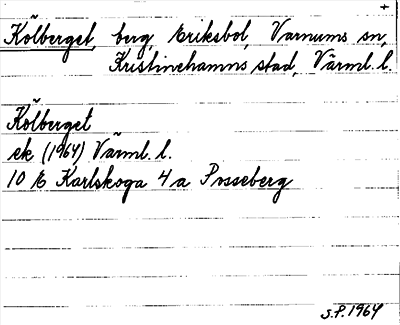 +
Kölberget, berg, Eriksbol, Varnums sn,
Kristinehamns stad, Värml. l.
Kölberget
ek (1964) Värml. l.
10 E Karlskoga 4a Posseberg
S.P. 1964